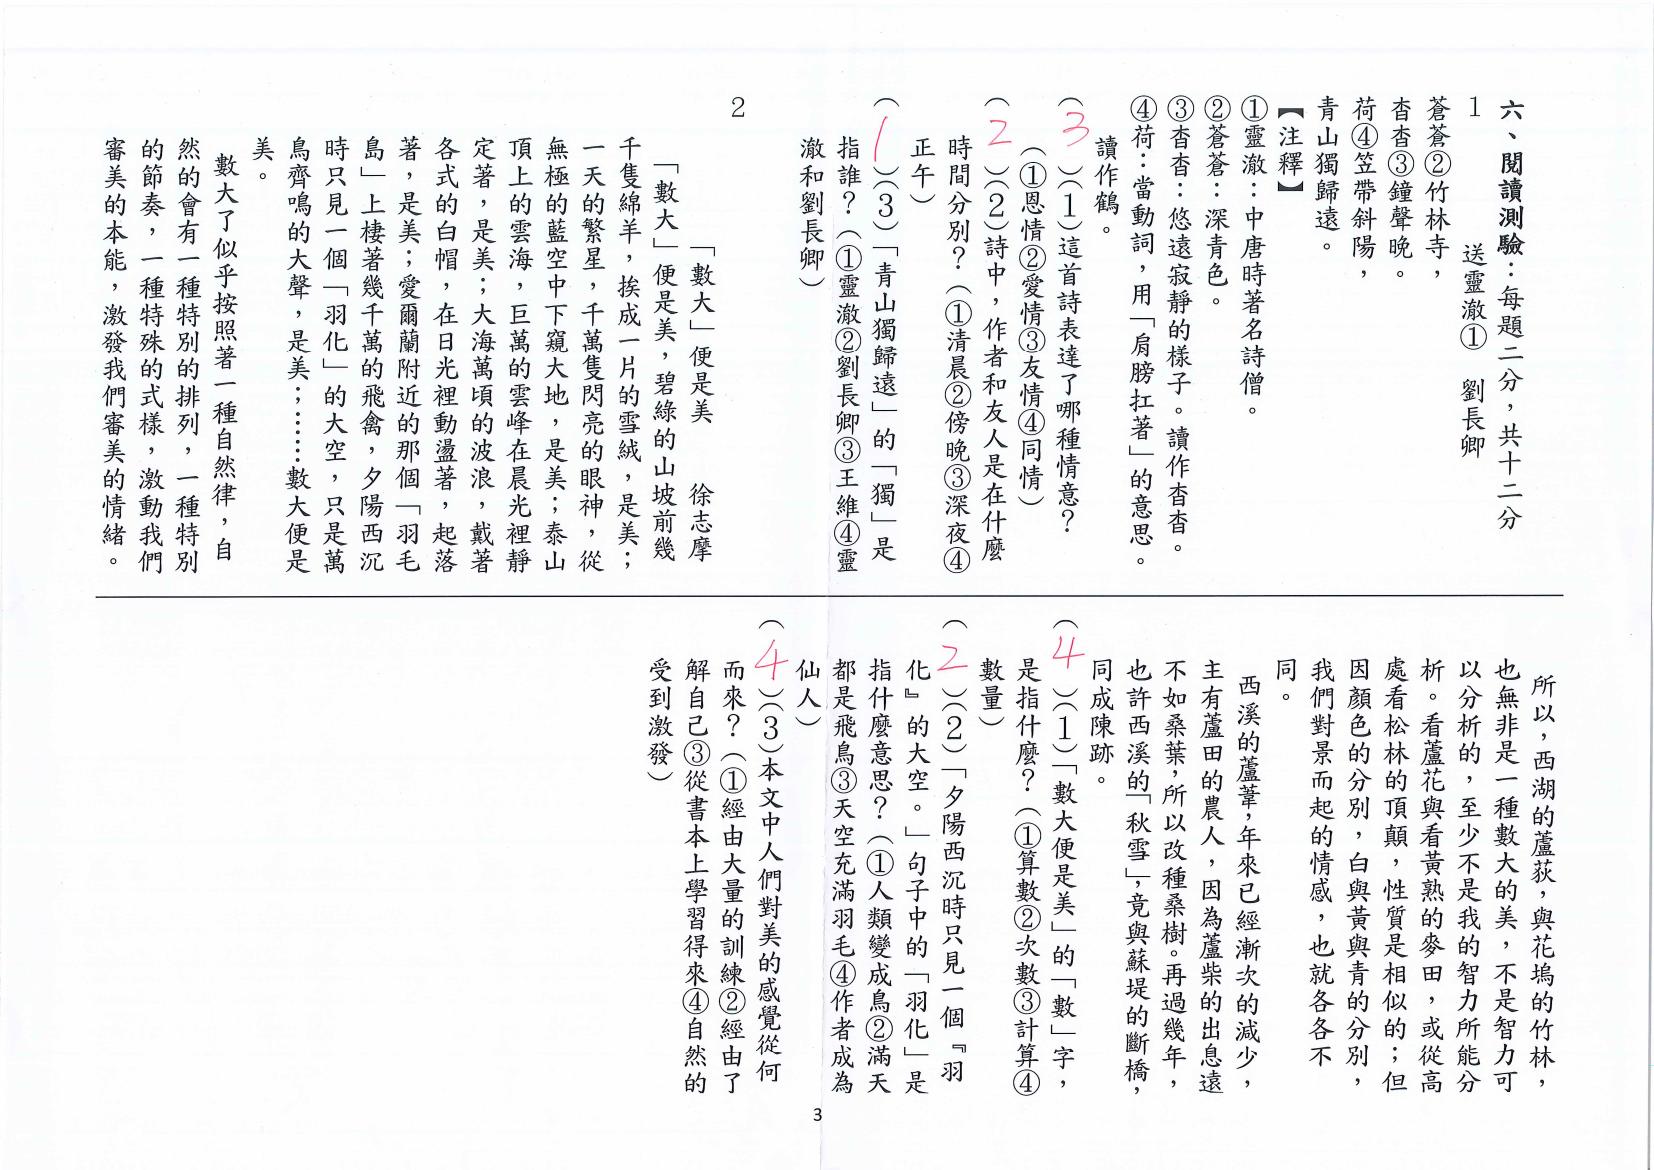 六、閱讀測驗：每題二分，共十二分
1　送靈澈①　劉長卿
蒼蒼②竹林寺，
杳杳③鐘聲晚。
荷④笠帶斜陽，
青山獨歸遠。
【注釋】
①靈澈：中唐時著名詩僧。
②蒼蒼：深青色。
③杳杳：悠遠寂靜的樣子。讀作杳杳。
④荷：當動詞，用「肩膀扛著」的意思。
讀作鶴。
（3）(1)這首詩表達了哪種情意？
（①恩情②愛情③友情④同情）
（2）(2)詩中，作者和友人是在什麼
時間分別？（①清晨②傍晚③深夜④
正午）
（1）(3)「青山獨歸遠」的「獨」是
指誰？（①靈澈②劉長卿③王維④靈
澈和劉長卿）
2
「數大」便是美　徐志摩
「數大」便是美，碧綠的山坡前幾
千隻綿羊，挨成一片的雪絨，是美；
一天的繁星，千萬隻閃亮的眼神，從
無極的藍空中下窺大地，是美；泰山
頂上的雲海，巨萬的雲峰在晨光裡靜
定著，是美；大海萬頃的波浪，戴著
各式的白帽，在日光裡動盪著，起落
著，是美；愛爾蘭附近的那個「羽毛
島」上棲著幾千萬的飛禽，夕陽西沉
時只見一個「羽化」的大空，只是萬
鳥齊鳴的大聲，是美；……數大便是
美。
數大了似乎按照著一種自然律，自
然的會有一種特別的排列，一種特別
的節奏，一種特殊的式樣，激動我們
審美的本能，激發我們審美的情緒。
所以，西湖的蘆荻，與花塢的竹林，
也無非是一種數大的美，不是智力可
以分析的，至少不是我的智力所能分
析。看蘆花與看黃熟的麥田，或從高
處看松林的頂顛，性質是相似的；但
因顏色的分別，白與黃與青的分別，
我們對景而起的情感，也就各各不
同。
西溪的蘆葦，年來已經漸次的減少，
主有蘆田的農人，因為蘆柴的出息遠
不如桑葉，所以改種桑樹。再過幾年，
也許西溪的「秋雪」，竟與蘇堤的斷橋，
同成陳跡。
（4）(1)「數大便是美」的「數」字，
是指什麼？（①算數②次數③計算④
數量）
（2）(2)「夕陽西沉時只見一個『羽
化』的大空。」句子中的「羽化」是
指什麼意思？（①人類變成鳥②滿天
都是飛鳥③天空充滿羽毛④作者成為
仙人）
（4）(3)本文中人們對美的感覺從何
而來？（①經由大量的訓練②經由了
解自己③從書本上學習得來④自然的
受到激發）
3